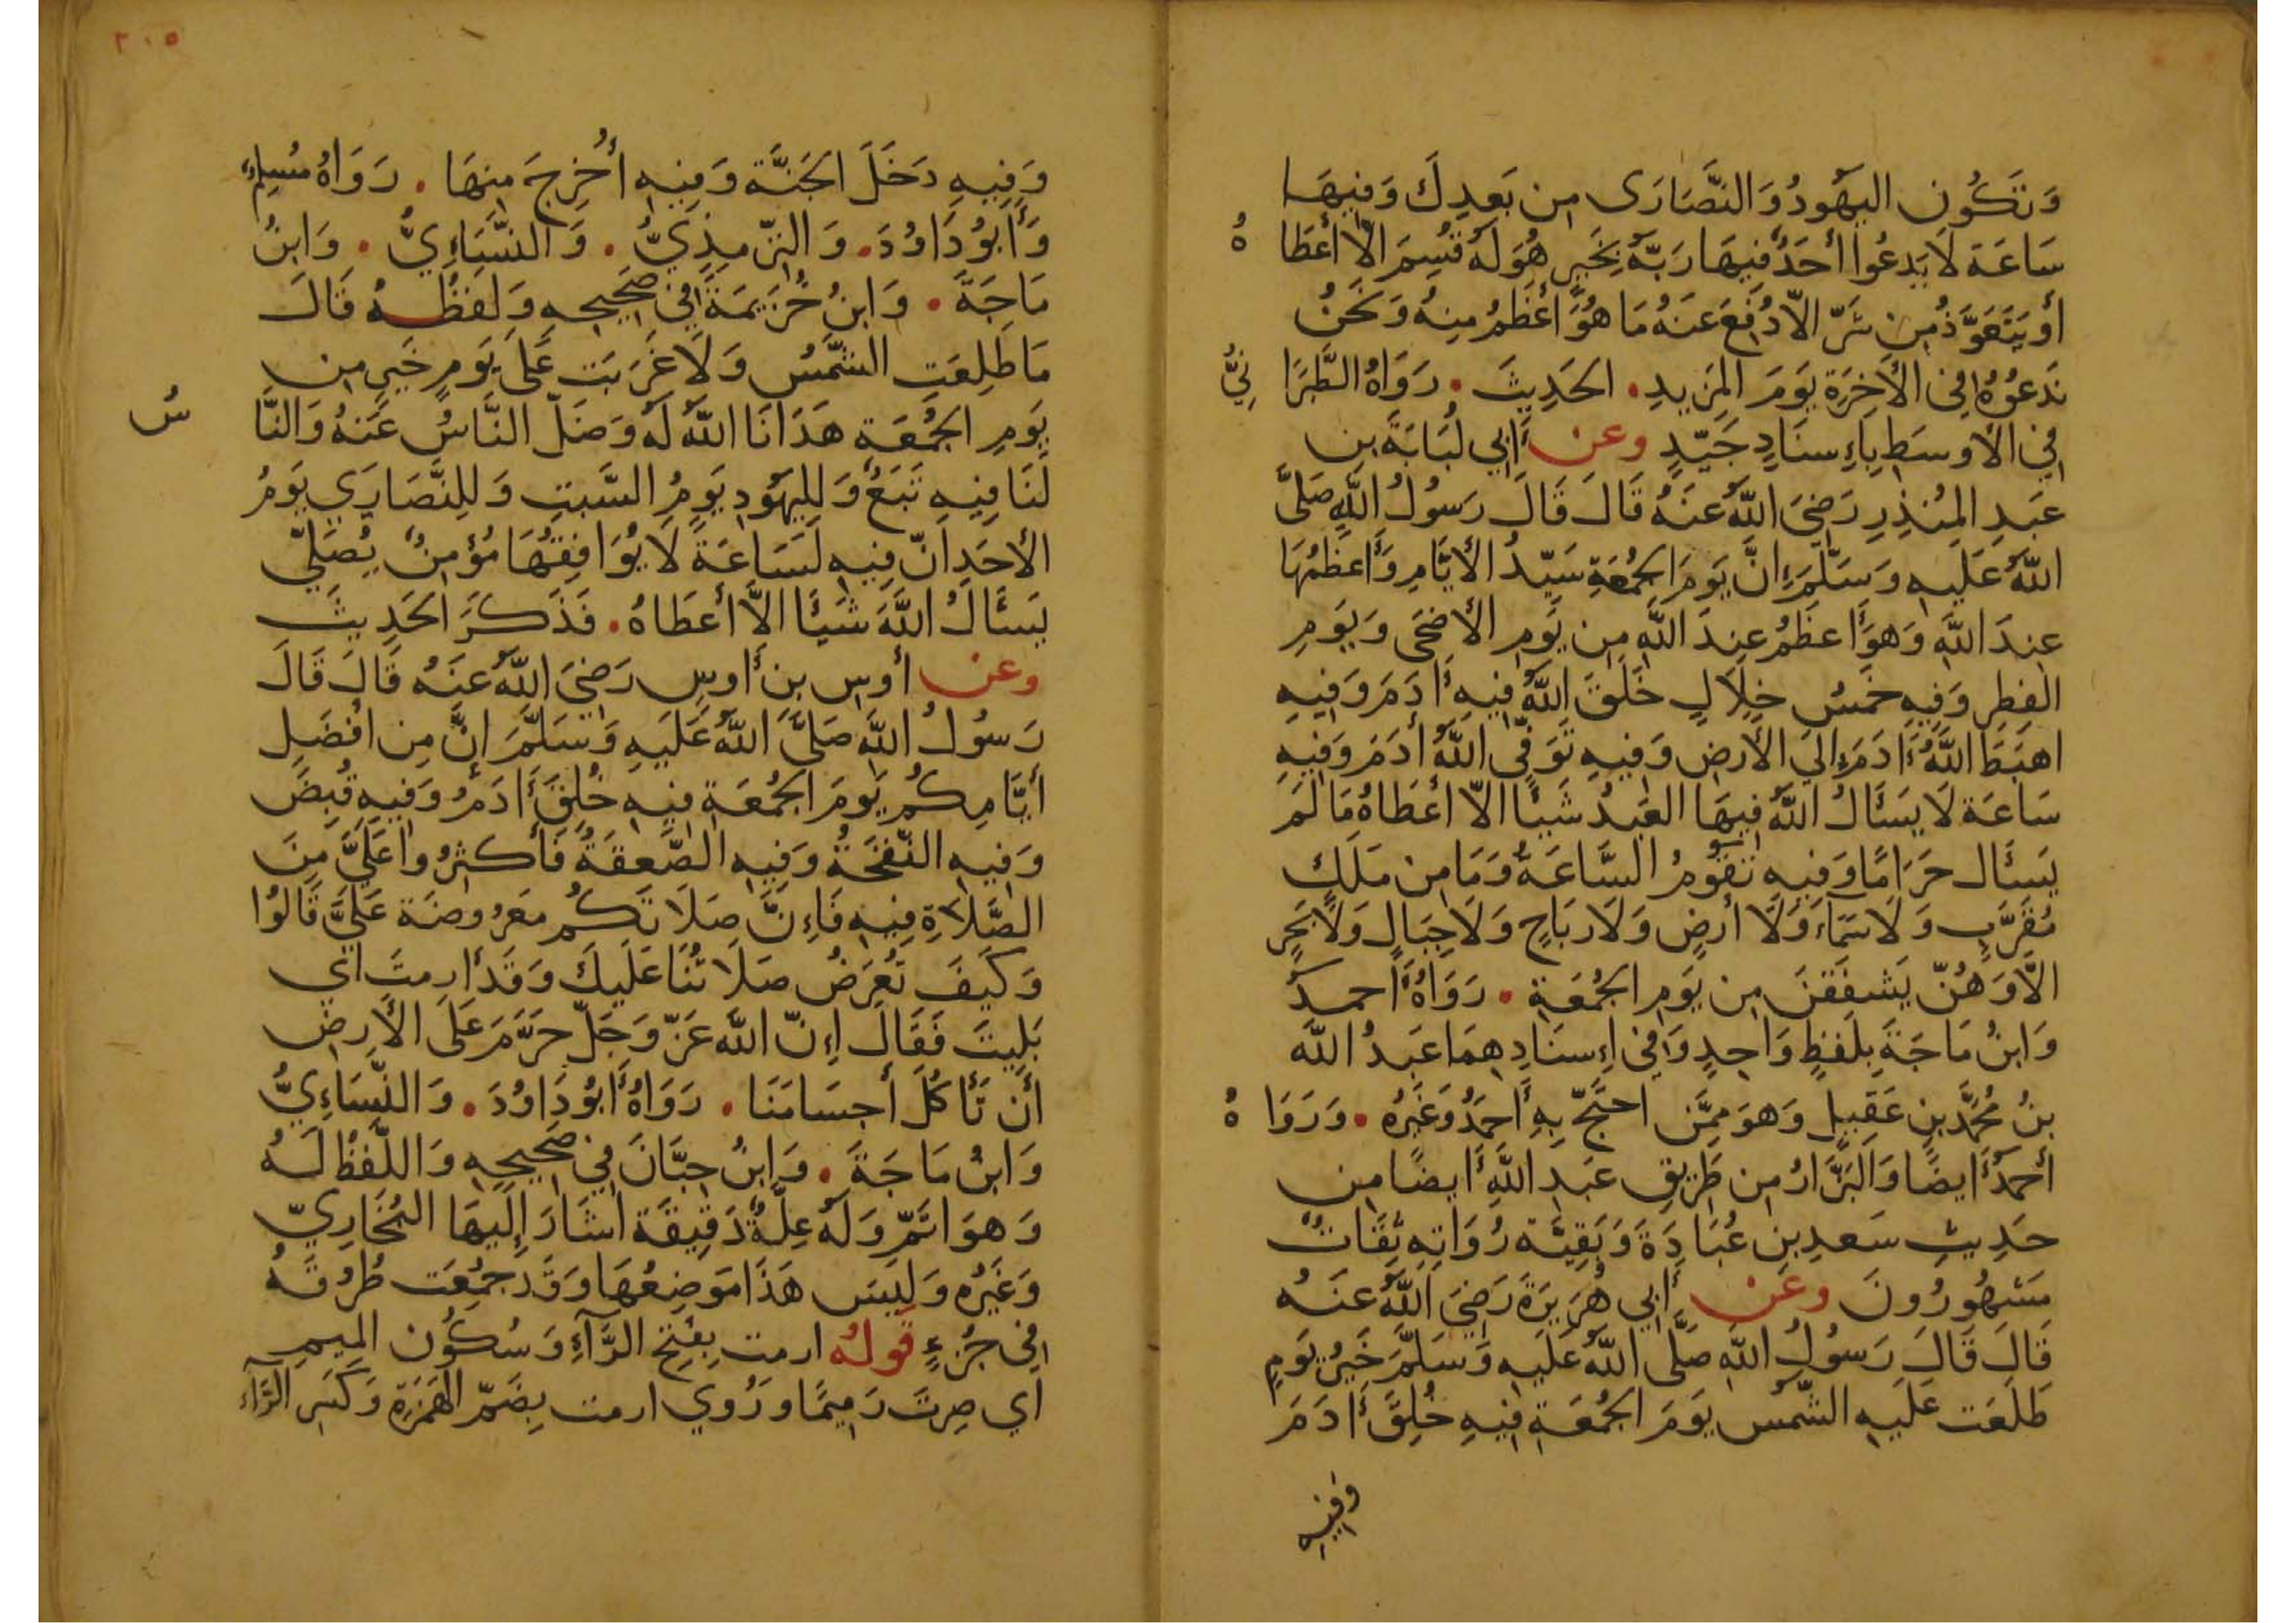 وَتَكُونِ اليَهُودُ وَالنَّصَارَى مِن بَعدِكَ وَفِيهَا
سَاعَة لَا يَدعُوا أَحَدٌ فِيهَا رَبَّهُ بِخَيرٍ هُوَ لَهُ قُسِمَ الاّ أَعطَاهُ
أو يَتَعَوَّذُ مِن شَرّ الاّ دُفِعَ عَنهُ مَا هُوَ أعظَمُ مِنهُ وَنَحنُ
نَدعُوهُ فِي الأَخِرَةِ يَومَ المَزِيدِ. الحَدِيثَ. رَوَاهُ الطَّبَرَانِيُّ
فِي الأوسَطِ بِاءِسنَادٍ جَيّدٍ وعن أَبِي لُبَابَةَ بنِ
عَبدِ المُنذِرِ رَضِيَ اللَّهُ عَنهُ قَالَ قَالَ رَسُولُ اللَّهِ صَلَّى
اللَّهُ عَلَيهِ وَسَلَّمَ إِنَّ يَومَ الجُمُعَةِ سَيّدُ الأيَّامِ وَأَعظَمُهَا
عِندَ اللَّهِ وَهوَ أَعظَمُ عِندَ اللَّهِ مِن يَومِ الأضحَى وَيَومِ
الفِطرِ وَفِيهِ خَمسُ خِلَالٍ خَلَقَ اللَّهُ فِيهِ أَادَمَ وَفِيهِ
اهبَطَ اللَّهُ أَادَمَ إِلَى الأَرضِ وَفِيهِ تَوَفَّى اللَّهُ أدَمَ وَفِيهِ
سَاعَة لَا يَسئَالُ اللَّهَ فِيهَا العَبدُ شَيئًا الاّ أعطَاهُ مَا لَم
يَسئَال حَرَامًا وَفِيهِ تَقُومُ السَّاعَةُ وَمَا مِن مَلَكٍ
مُقَرَّبٍ وَلَا سَمَاءَ وَلَا أرضٍ وَلَا رِيَاحٍ وَلَا جِبَالٍ وَلَا بَحرٍ
الاَّ وَهُنّ يَشفَقنَ مِن يَومِ الجُمُعَةِ. رَوَاهُ أَحمدُ
وَابنُ مَاجَةَ بِلَفظٍ وَاحِدٍ وَفِي اءِسنَادِهِمَا عَبدُ اللَّه
بنُ مُحَمَّدِ بنِ عَقِيلٍ وَهوَ مِمَّن احتَجّ بِهِ أَحمَدُ وَغَيرُه. وَرَوَاهُ
أَحمَدُ أَايضًا وَالبَزَّارُ مِن طَرِيقِ عَبدِ اللَّهِ أَايضًا مِن
حَدِيثِ سَعدِ بنِ عُبَادَةَ وَبَقِيَّة رُوَاتِهِ ثِقَاتٌ
مَشهُورُونَ وعن أَبِي هُرَيرَةَ رَضِيَ اللَّهُ عَنهُ
قَالَ قَالَ رَسُولُ اللَّهِ صَلَّى اللَّهُ عَلَيهِ وَسَلَّمَ خَيرُ يَومٍ
طَلَعَت عَلَيهِ الشَّمسُ يَومَ الجُمُعَةِ فِيهِ خُلِقَ أَادَمَ
وفيه
٢٠٥
وَفِيهِ دَخَلَ الجَنَّة وَفِيهِ أُخرِجَ مِنهَا. رَوَاهُ مُسلِمٌ
وَأَبُو دَاوُدَ. وَالتِّرمِذِيُّ. وَالنَّسَاءِيُّ. وَابنُ
مَاجَةَ. وَابنُ خُزَيمَةَ فِي صَحِيحِهِ وَلَفظُهُ قَالَ
مَا طَلِعَتِ الشَّمسُ وَلَا غَرَبَت عَلَى يَومٍ خَيرٍ مِن
يَومِ الجُمُعَةِ هَدَانَا اللَّهُ لَهُ وَضَلّ النَّاسُ عَنهُ وَالنَّاسُ
لَنَا فِيهِ تَبَعٌ وَلِليَهُودِ يَومُ السَّبتِ وَلِلنَّصَارَي يَومُ
الأحَدِ إنّ فِيهِ لَسَاعَةً لَا يُوَافِقُهَا مُؤمِنٌ يُصَلِّي
يَسئَالُ اللَّهَ شَيئًا الاَّ أَعطَاهُ. فَذَكَرَ الحَدِيثَ
وعن أَوسِ بنِ أَوسٍ رَضِيَ اللَّهُ عَنهُ قَالَ قَالَ
رَسُولُ اللَّهِ صَلَّى اللَّهُ عَلَيهِ وَسَلَّمَ إِنَّ مِن افضَلِ
أَيَّامِكُم يَومَ الجُمُعَةِ فِيهِ خُلِقَ أَادَمُ وَفِيهِ قُبِضَ
وَفِيهِ النَّفخَةُ وَفِيهِ الصَّعقَةُ فَأَكثِرُوا عَلَيَّ مِنَ
الصَّلَاةِ فِيهِ فَاءِنَّ صَلَاتَكُم مَعرُوضَة عَلَيَّ قَالُوا
وَكَيفَ تُعرَضُ صَلَاتُنَا عَلَيكَ وَقَد أَرِمتَ أي
بَلِيتَ فَقَالَ اءِنّ اللَّهَ عَزّ وَجَلّ حَرَّمَ عَلَى الأَرضِ
أَن تَأكُلَ أَجسَامَنَا. رَوَاهُ أَبُو دَاوُدَ. وَالنَّسَاءِيُّ
وَابنُ مَاجَةَ. وَابنُ حِبَّانَ فِي صَحِيحِهِ وَاللَّفظُ لَهُ
وَهوَ اتَمّ وَلَهُ عِلَّةٌ دَقِيقَة اشَارَ إِلَيهَا البُخَارِيّ
وَغَيرُه وَلَيسَ هَذَا مَوضِعُهَا وَقَد جُمِعَت طُرُقُهُ
فِي جُزءٍ قوله ارمت بِفَتحِ الرَّآءِ وَسُكُون المِيمِ
اي صِرتَ رَمِيمًا وَرُوي ارمت بِضَمّ الهَمزَةِ وَكَسرِ الرَّآءِ